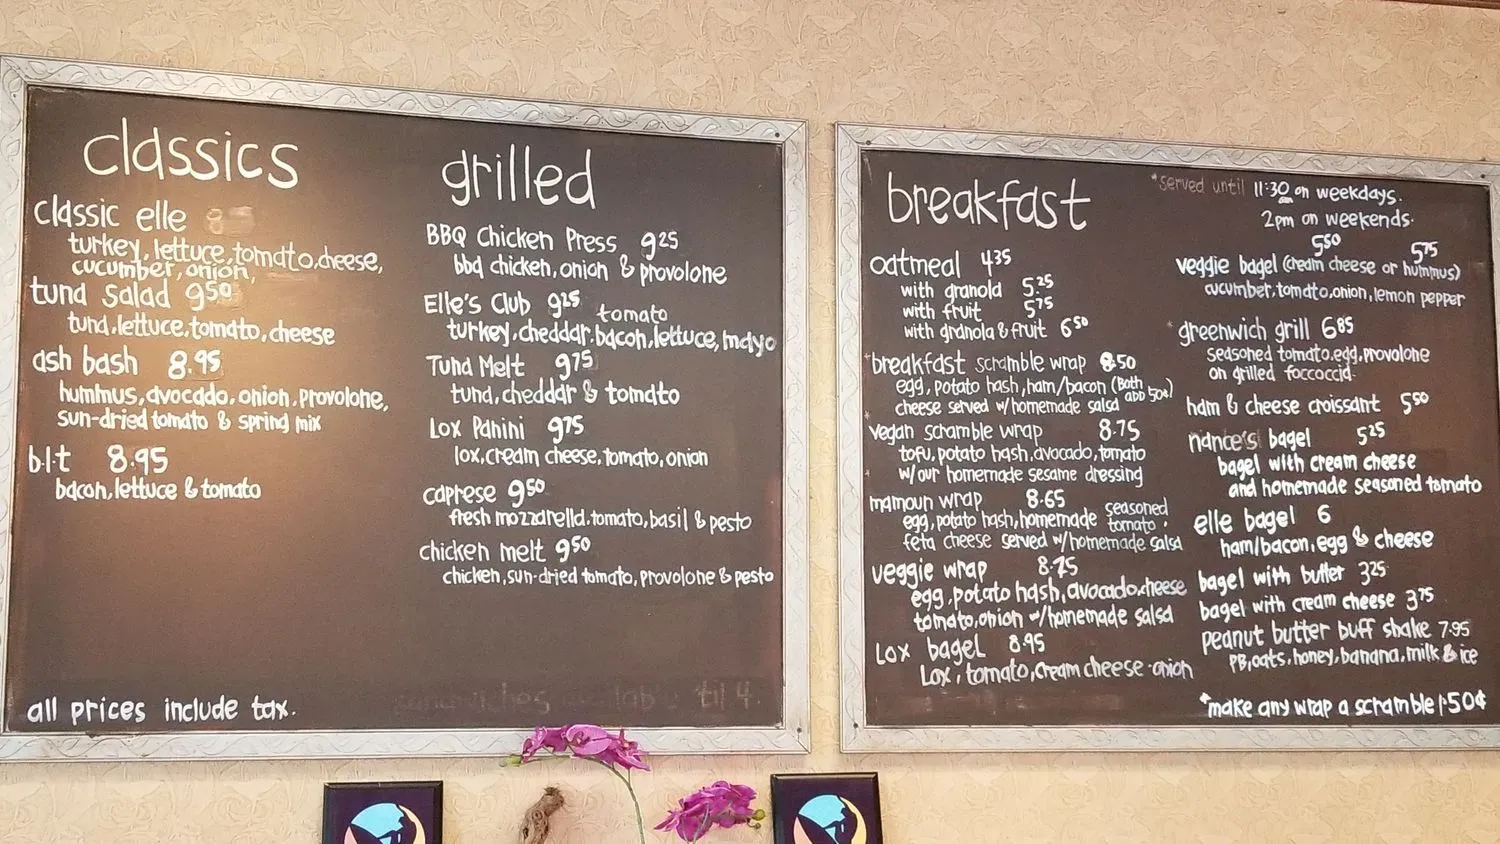 classics
classic elle 8
turkey, lettuce, tomato, cheese,
cucumber, onion,
tuna salad 9.50
tuna, lettuce, tomato, cheese
ash bash 8.95
hummus, avocado, onion, provolone,
sun-dried tomato & spring mix
b.l.t 8.95
bacon, lettuce & tomato
all prices include tax.
grilled
BBQ Chicken Press 9.25
bbq chicken, onion & provolone
Elle's Club 9.25
tomato
turkey, cheddar, bacon, lettuce, mayo
Tuna Melt 9.75
tuna, cheddar & tomato
Lox Panini 9.75
lox, cream cheese, tomato, onion
caprese 9.50
fresh mozzarella, tomato, basil & pesto
chicken melt 9.50
chicken, sun-dried tomato, provolone & pesto
sandwiches available til 4.
breakfast
oatmeal 4.35
with granola 5.25
with fruit 5.75
with granola & fruit 6.50
*breakfast scramble wrap 8.50
egg, potato hash, ham/bacon (Both add 50¢)
cheese served w/homemade salsa
*vegan scramble wrap 8.75
tofu, potato hash, avocado, tomato
w/our homemade sesame dressing
*mamoun wrap 8.65
egg, potato hash, homemade seasoned tomato,
feta cheese served w/homemade salsa
veggie wrap 8.75
egg, potato hash, avocado, cheese
tomato, onion w/homemade salsa
Lox bagel 8.95
Lox, tomato, cream cheese, onion
*served until 11:30 on weekdays.
2pm on weekends.
5.50 5.75
veggie bagel (cream cheese or hummus)
cucumber, tomato, onion, lemon pepper
*greenwich grill 6.85
seasoned tomato, egg, provolone
on grilled foccoccia
ham & cheese croissant 5.50
nance's bagel 5.25
bagel with cream cheese
and homemade seasoned tomato
elle bagel 6
ham/bacon, egg & cheese
bagel with butter 3.25
bagel with cream cheese 3.75
peanut butter buff shake 7.95
PB, oats, honey, banana, milk & ice
*make any wrap a scramble 1.50¢